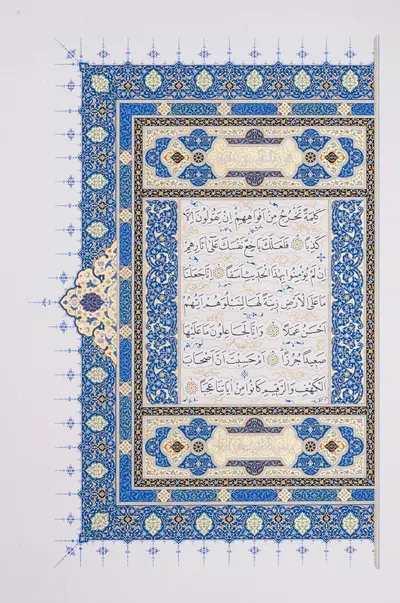 كَلِمَةً تَخْرُجُ مِنْ أَفْوَاهِهِمْ إِنْ يَقُولُونَ إِلَّا
كَذِبًا فَلَعَلَّكَ بَاخِعٌ نَفْسَكَ عَلَى آثَارِهِمْ
إِنْ لَمْ يُؤْمِنُوا بِهَذَا الْحَدِيثِ أَسَفًا إِنَّا جَعَلْنَا
مَا عَلَى الْأَرْضِ زِينَةً لَهَا لِنَبْلُوَهُمْ أَيُّهُمْ
أَحْسَنُ عَمَلًا وَإِنَّا لَجَاعِلُونَ مَا عَلَيْهَا
صَعِيدًا جُرُزًا أَمْ حَسِبْتَ أَنَّ أَصْحَابَ
الْكَهْفِ وَالرَّقِيمِ كَانُوا مِنْ آيَاتِنَا عَجَبًا